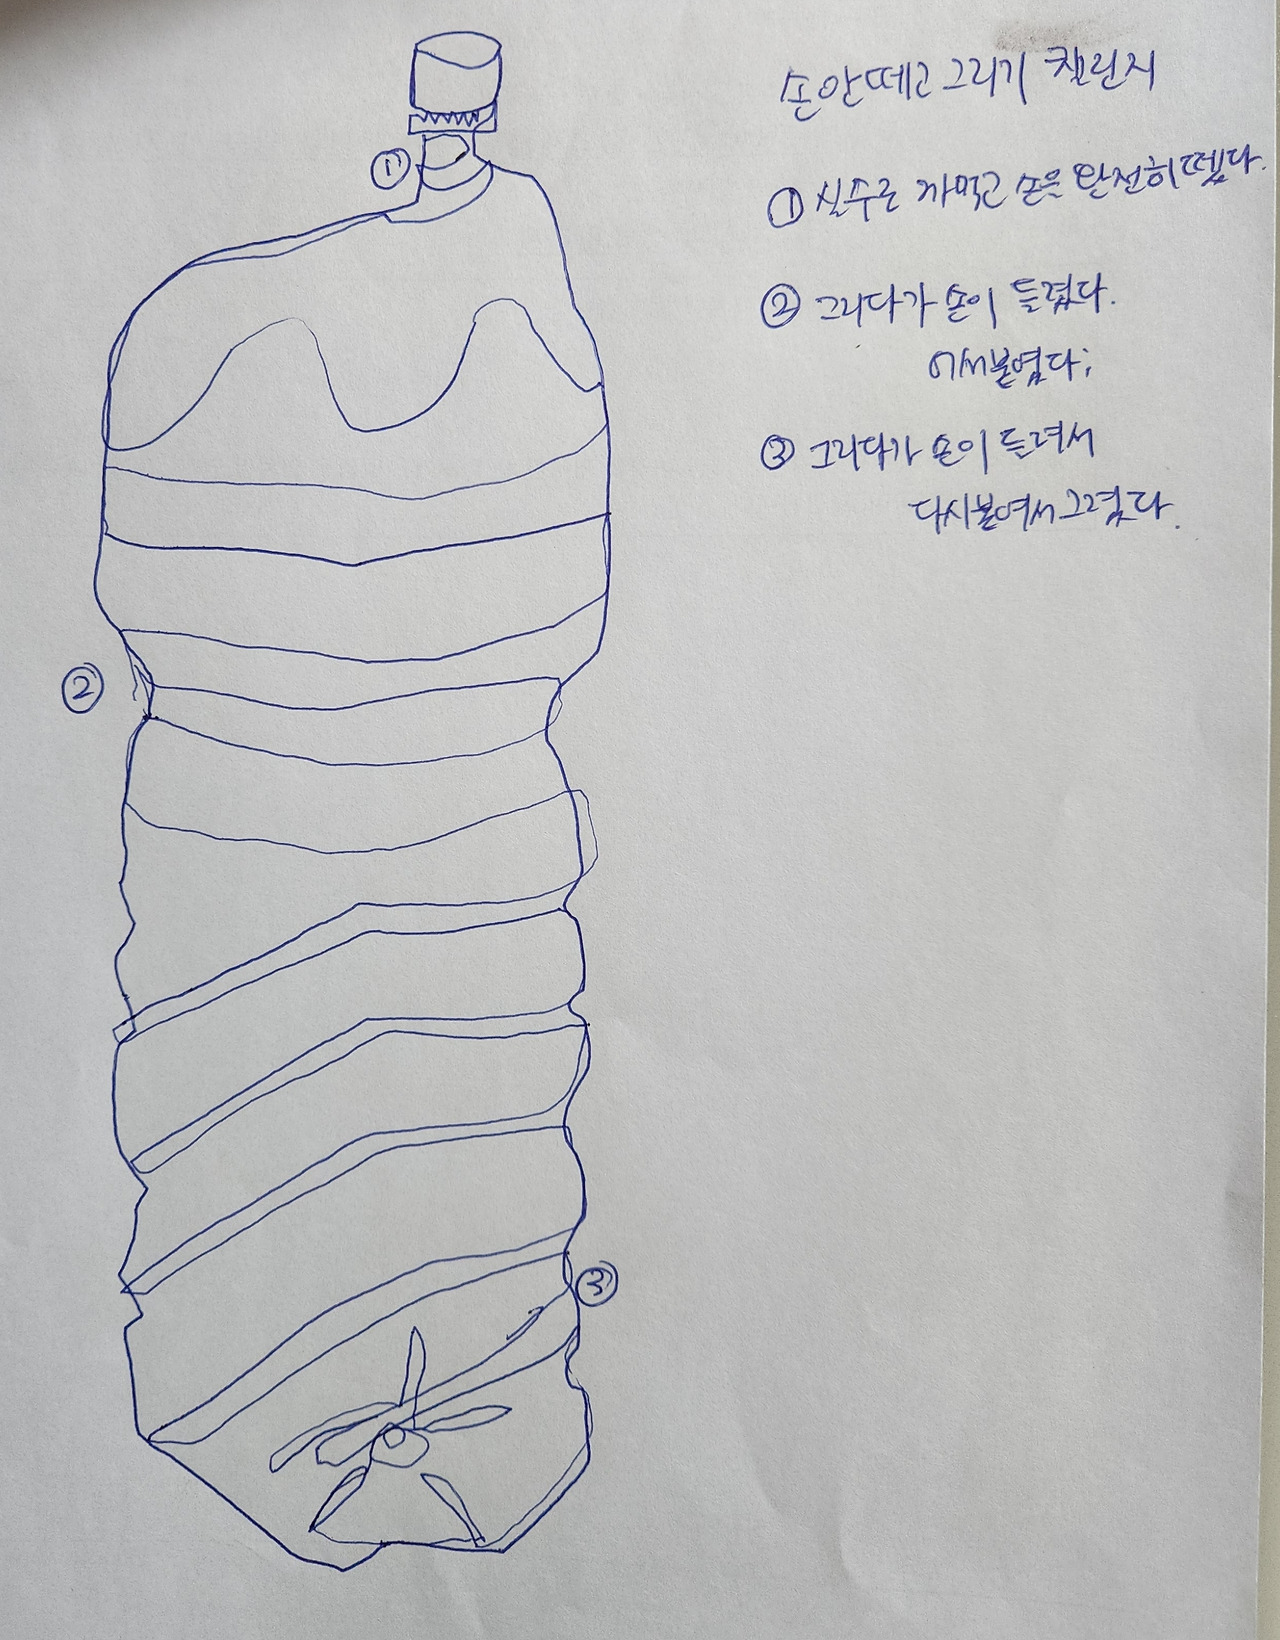 손안떼고 그리기 챌린지
① 실수로 까먹고 손을 완전히 뗐다.
② 그리다가 손이 들렸다.
어서붙였다;
③ 그리다가 손이 들려서
다시붙여서그렸다.
①
②
③